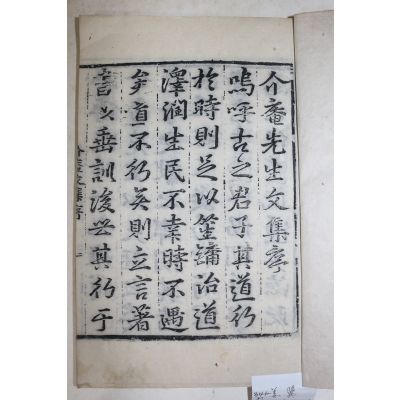 介庵先生文集序
嗚呼古之君子其道行
於時則足以笙鏞治道
澤潤生民不幸時不遇
不行矣則立言著
書以垂訓後世其行于
介庵文集序